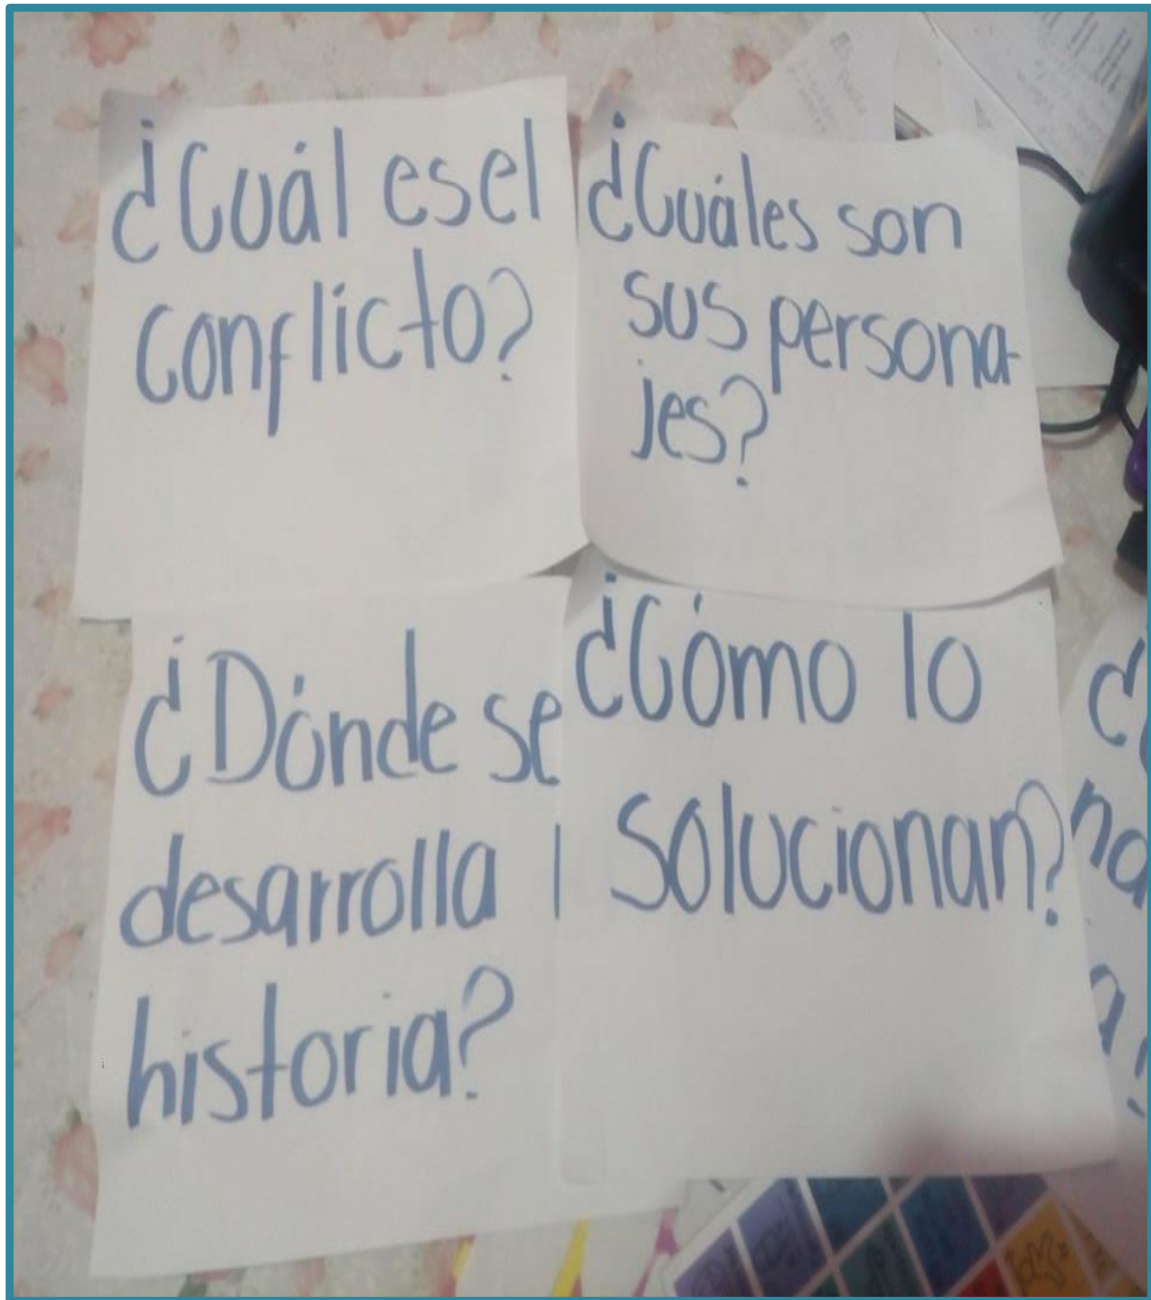 ¿Cuál es el
conflicto?
¿Cuáles son
sus persona-
jes?
¿Dónde se
desarrolla l
historia?
¿Cómo lo
solucionan?